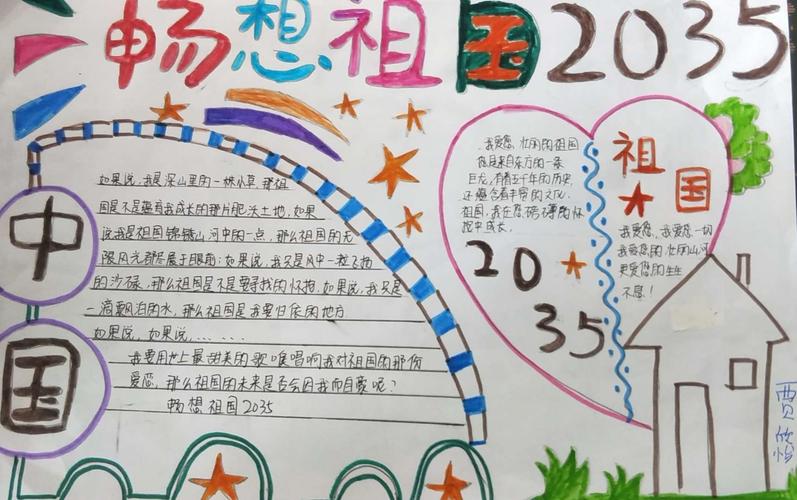 畅想祖国2035
中国
如果说,我是深山里的一株小草,那祖
国是不是蕴育我成长的那片肥沃土地,如果
说我是祖国锦锈山河中的一点,那么祖国的无
限风光都尽展于眼前;如果说,我只是风中一粒飞扬
的沙砾,那么祖国是不是要寻找的怀抱,如果说,我只是
一滴要风泊的水,那么祖国是我要归依的地方
如果说,如果说,......
我要用世上最甜美的歌喉唱响我对祖国的那份
爱恋,那么祖国的未来是否会因我而自豪呢?
畅想祖国2035
我爱您,壮阔的祖国
您是来自东方的一条
巨龙,有着五千年的历史,
还蕴含着丰富的文化,
祖国,我在您磅礴的怀
抱中成长.
20
35
祖
国
我爱您,我爱您一切
我爱您的壮阔山河
更爱您的生生
不息!
贾欣怡